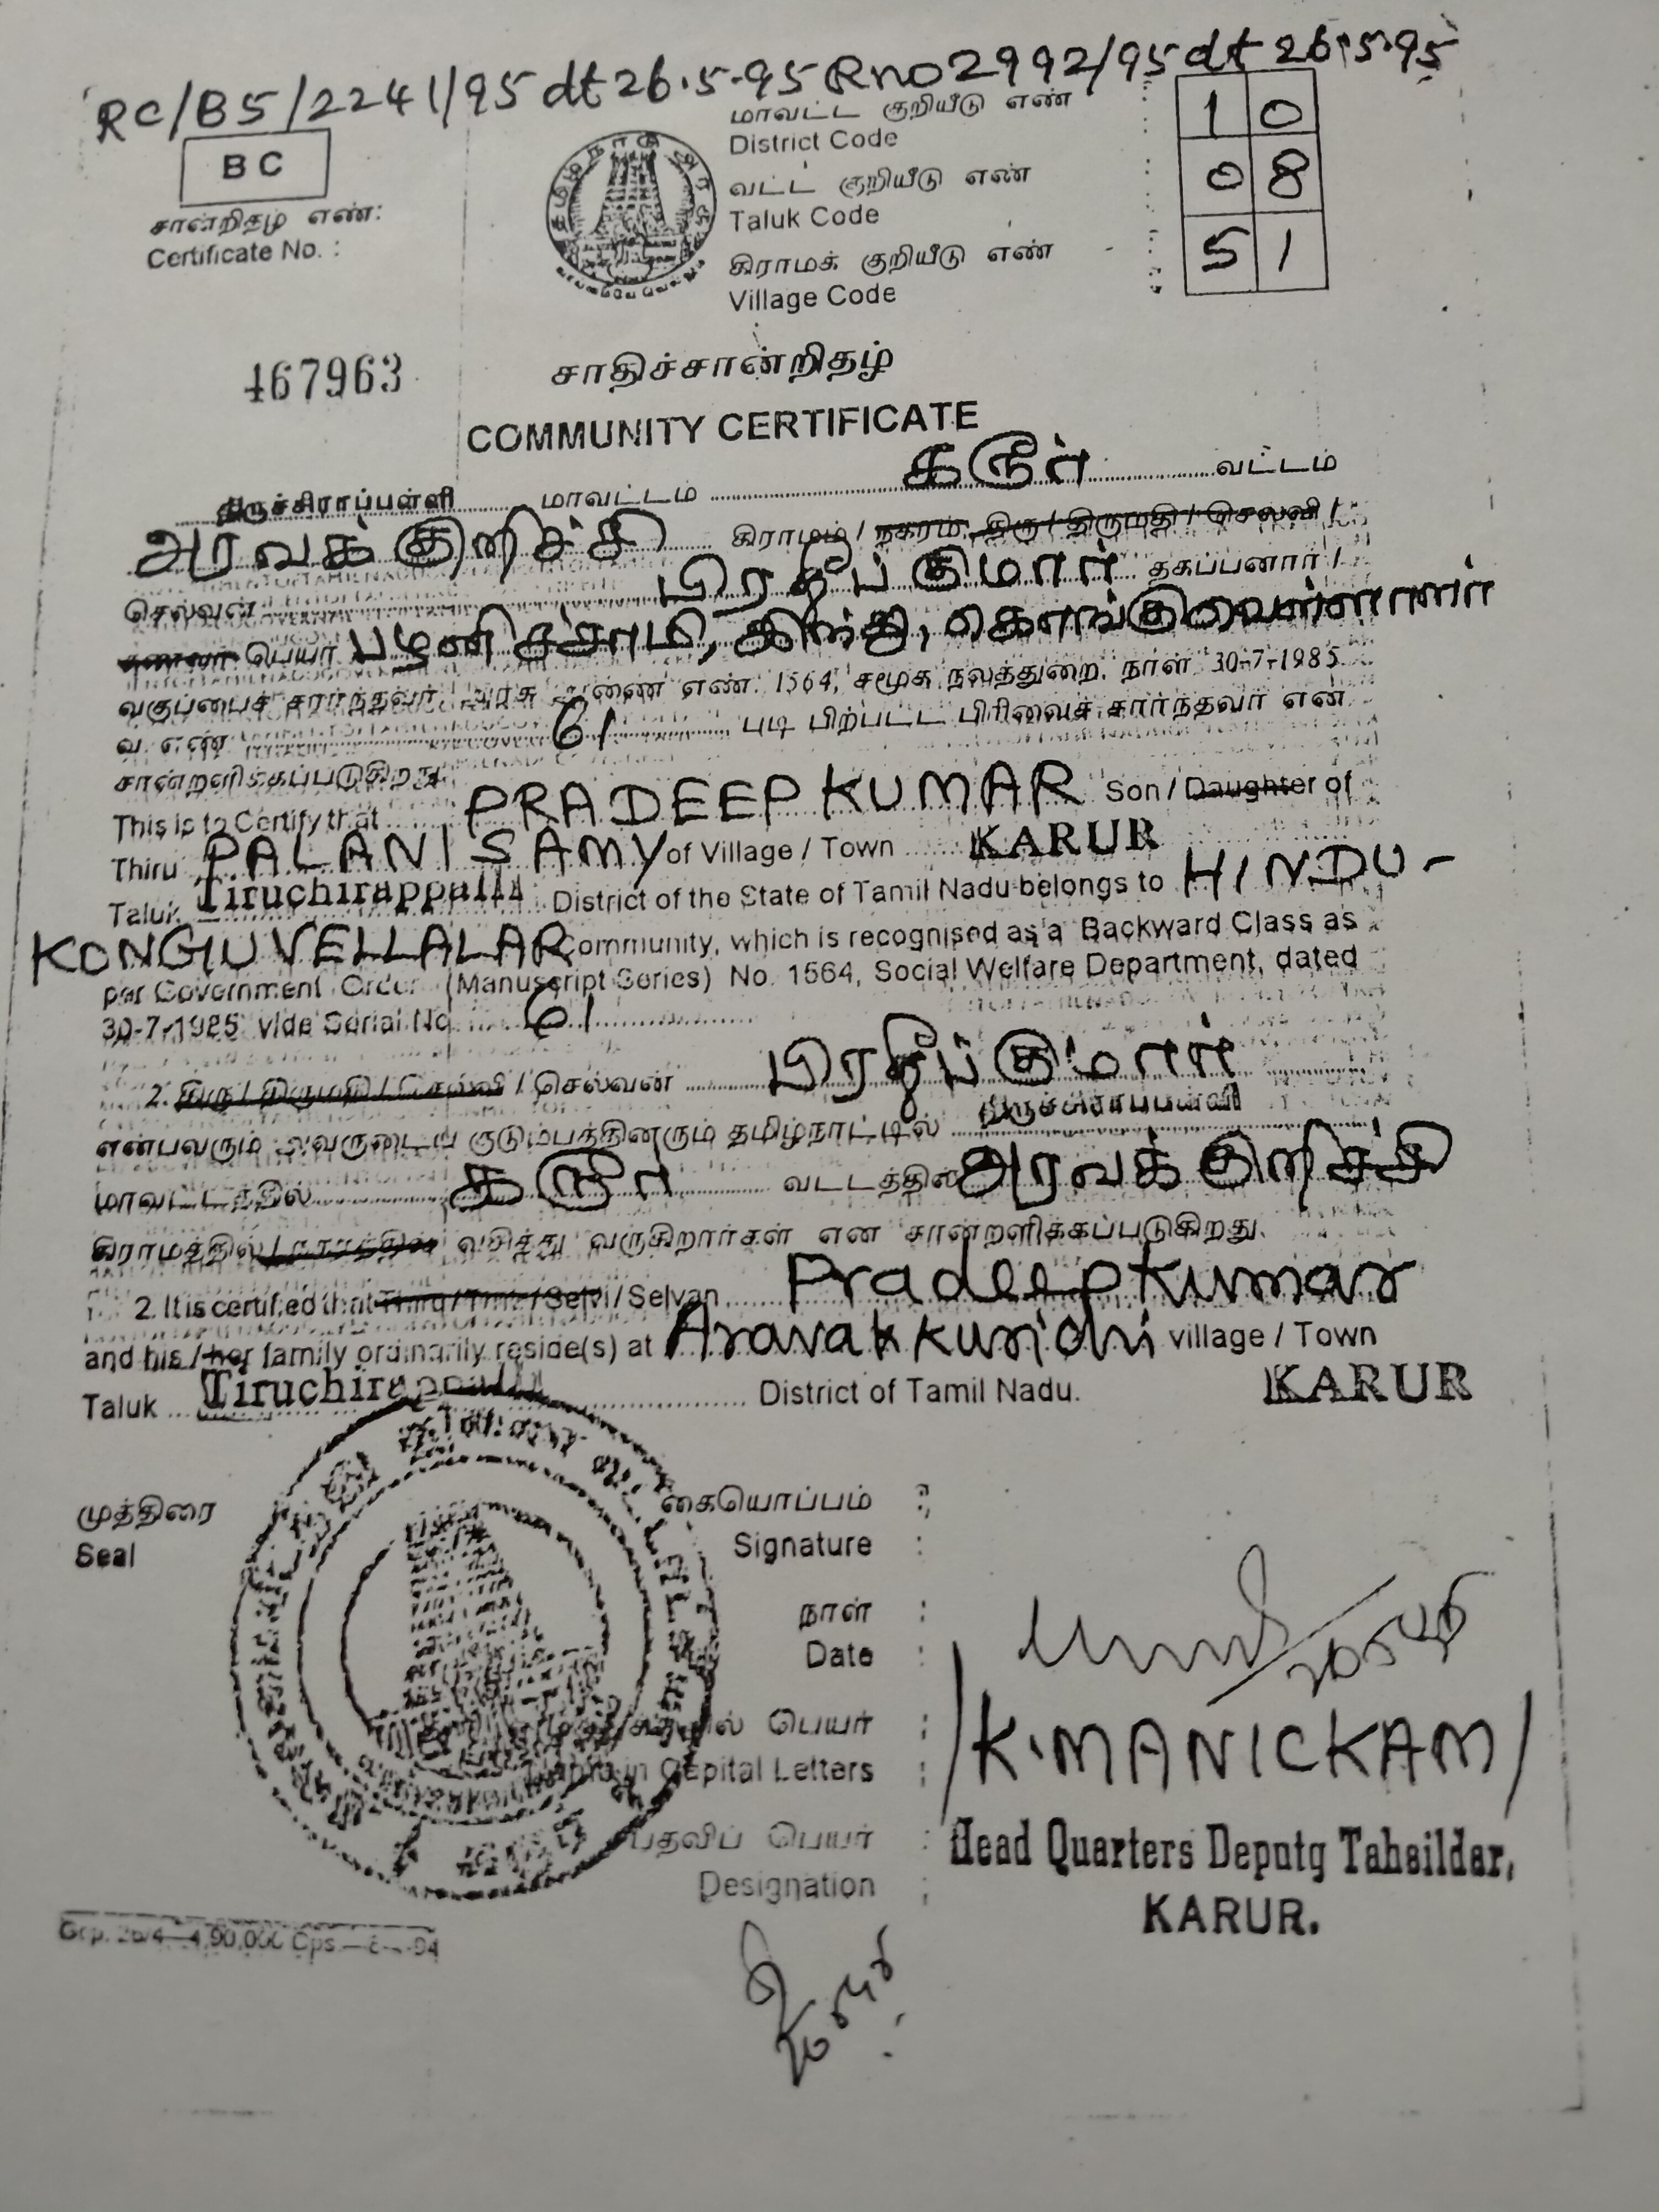 RC/B5/2241/95 dt 26.5.95 Rno 2992/95 dt 26.5.95
BC
சான்றிதழ் எண்:
Certificate No. :
மாவட்ட குறியீடு எண்
District Code
1 0
வட்ட குறியீடு எண்
Taluk Code
0 8
கிராமக் குறியீடு எண்
Village Code
5 1
467963
சாதிச்சான்றிதழ்
COMMUNITY CERTIFICATE
திருச்சிராப்பள்ளி மாவட்டம் கரூர் வட்டம்
அரவக்குறிச்சி கிராமம் / நகரம் திரு / திருமதி / செல்வி /
செல்வன் பிரதீப்குமார் தகப்பனார் /
கணவர் பெயர் பழனிச்சாமி, இந்து, கொங்குவெள்ளாளர்
வகுப்பைச் சார்ந்தவர் அரசு ஆணை எண். 1564, சமூக நலத்துறை, நாள் 30-7-1985
வ. எண் 61 படி பிற்பட்ட பிரிவைச் சார்ந்தவர் என
சான்றளிக்கப்படுகிறது
This is to Certify that PRADEEPKUMAR Son / Daughter of
Thiru PALANISAMY of Village / Town KARUR
Taluk Tiruchirappalli District of the State of Tamil Nadu belongs to HINDU -
KONGU VELLALAR Community, which is recognised as a Backward Class as
per Government Order (Manuscript Series) No. 1564, Social Welfare Department, dated
30-7-1985 vide Serial No 61
2. திரு / திருமதி / செல்வி / செல்வன் பிரதீப்குமார்
என்பவரும் அவருடைய குடும்பத்தினரும் தமிழ்நாட்டில் திருச்சிராப்பள்ளி
மாவட்டத்தில் கரூர் வட்டத்தில் அரவக்குறிச்சி
கிராமத்தில் / நகரத்தில் வசித்து வருகிறார்கள் என சான்றளிக்கப்படுகிறது.
2. It is certified that Thiru / Tmt / Selvi / Selvan Pradeepkumar
and his / her family ordinarily reside(s) at Aravakkurichi village / Town
Taluk Tiruchirappalli District of Tamil Nadu. KARUR
முத்திரை
Seal
கையொப்பம் :
Signature :
நாள் :
Date :
பெயர் :
in Capital Letters :
/K.MANICKAM/
பதவிப் பெயர் :
Designation :
Head Quarters Deputy Tahsildar,
KARUR.